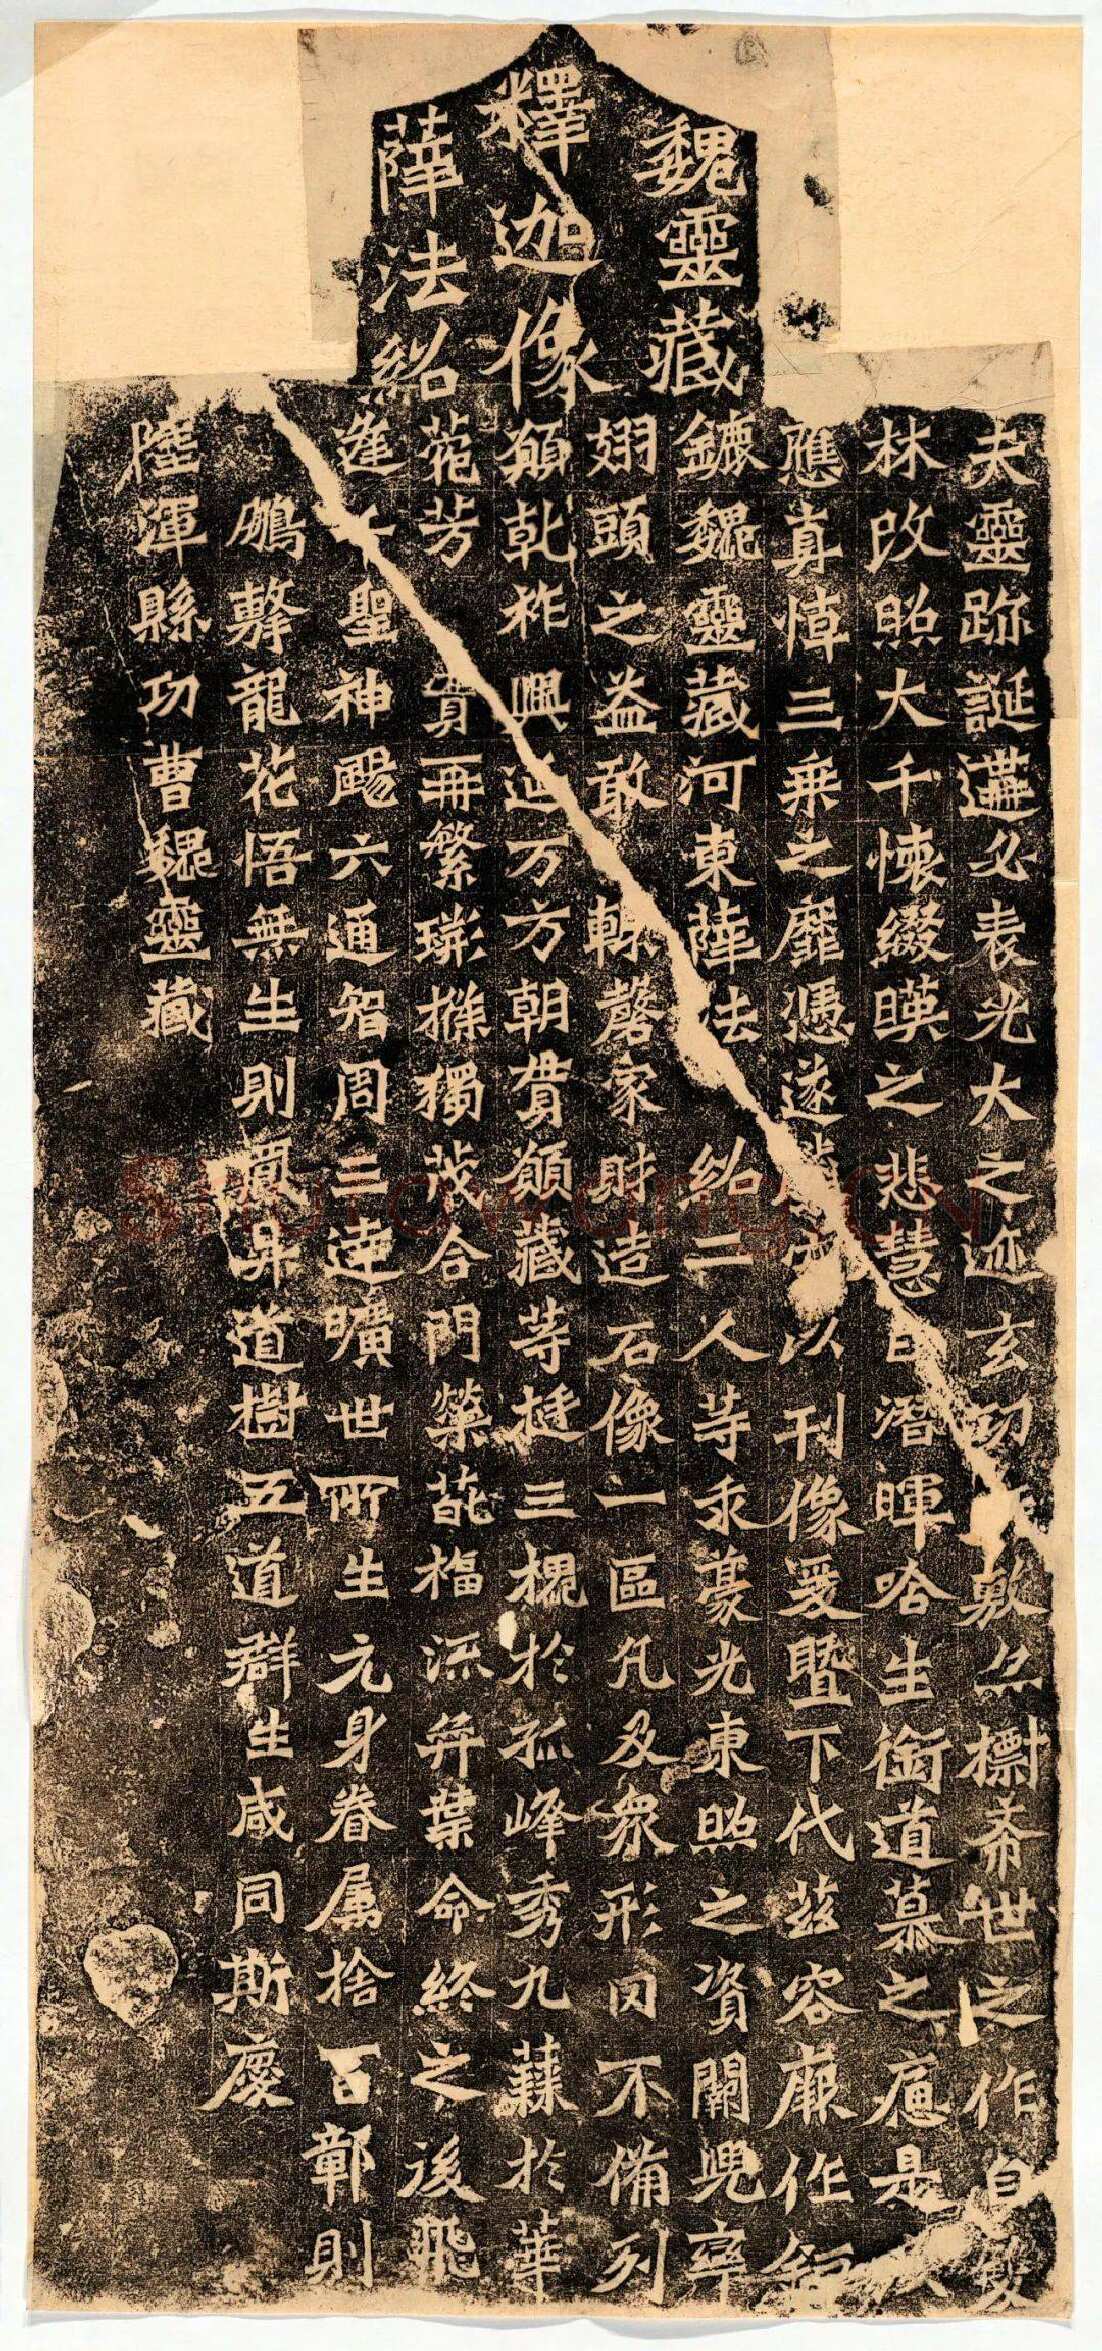 魏靈藏
釋迦像
薛法紹
夫靈跡誕遘必表光大之迹玄功敷亦標希世之作自雙
林改照大千懷綴暎之悲慧日潛暉哈生銜道慕之痛是以
應真悼三乘之靡憑遂以刊像爰暨下代茲容厥作鉅
鏕魏靈藏河東薛法紹二人等求豪光東照之資闕兜率
翅頭之益敢輒磬家財造石像一區凡及眾形罔不備列
願乾祚興延万方朝貫願藏等挺三槐於孤峰秀九蕀於華
菀芳實再繁荊條獨茂合門榮葩福流奕葉命終之後飛
逢千聖神颺六通智周三達曠世所生元身眷屬捨百鄣則
鵬擊龍花悟無生則鳳昇道樹五道群生咸同斯慶
陸渾縣功曹魏靈藏
Shufawang.CN